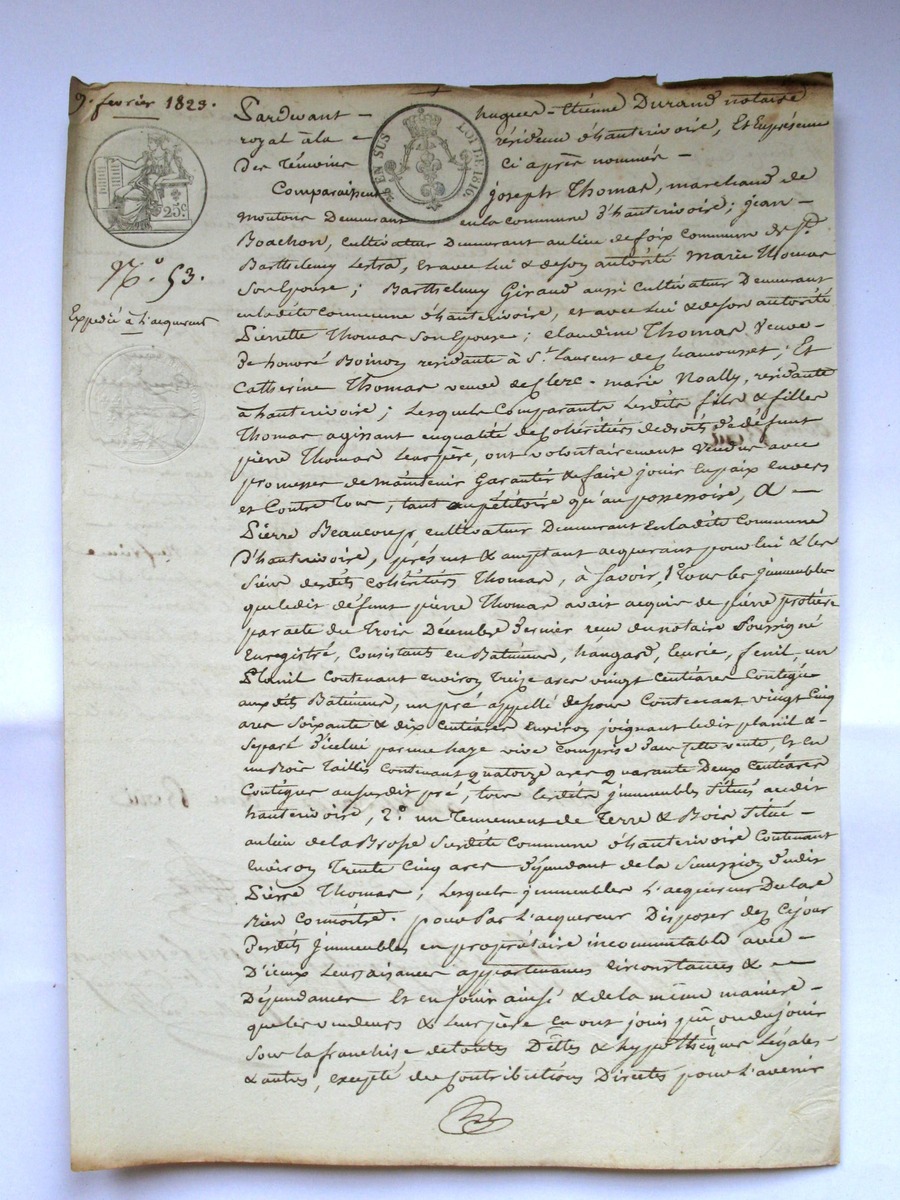 9. fevrier 1823.
25c.
N.o 53.
Expedié à l'acquereur
EN SUS LOI DE 1816.
Pardevant hugues-Etienne Durand notaire
royal à la résidence d'hauterivoire, Et En présence
Des Témoins Ci après nommés
Comparaissent joseph Thomas, marchand de
moutons Demeurant en la commune d'hauterivoire; jean
Boachon, cultivateur Demeurant au lieu de foix Commune de St.
Barthelemy Lestra, Et avec Lui & de son autorité marie Thomas
Son Epouse; Barthelemy Giraud aussi Cultivateur Demeurant
en ladite Commune d'hauterivoire, et avec Lui & de son autorité
Pierrette Thomas Son Epouse; Claudine Thomas Veuve
De honoré residante à St. Laurent de Chamousset; Et
Catherine Thomas veuve de Clerc-marie Noally, residante
à hauterivoire; Lesquels Comparants Lesdits fils & filles
Thomas agissant en qualité de Cohéritiers de droits de défunt
pierre Thomas Leur père, ont volontairement Vendu avec
promesses de maintenir Garantir & faire jouir En paix Envers
et Contre Tous, tant au pétitoire qu'au possessoire, A
Pierre Beaucoup cultivateur Demeurant En ladite Commune
D'hauterivoire, présent & acceptant acquerant pour lui & les
Siens desdits cohéritiers Thomas, à Savoir, 1o. Tous les jmmeubles
que ledit défunt pierre Thomas avait acquis de pierre
par acte du Trois Décembre Dernier reçu du notaire Poussigné
Enregistré, Consistants en Batiments, hangard, Ecurie, fenil, un
Planil Contenant environ Treize ares vingt Centiares Contigu
aux dits Batiments, un pré appellé Contenant vingt Cinq
ares Soixante & dix Centiares Environ joignant ledit planil &
Separé D'icelui par une haye vive Comprise Dans cette vente, Et En
un Bois Taillis Contenant quatorze ares quarante Deux Centiares
Contigue au susdit pré, tous lesdits jmmeubles Situés audit
hauterivoire, 2o. un Tennement de Terre & Bois Situé
au lieu de la Brosse Susdite Commune d'hauterivoire Contenant
Environ Trente Cinq ares Dépendant de la Succession dudit
Pierre Thomas; Lesquels jmmeubles L'acquereur Declare
Bien Connoitre. pour Par L'acquereur Disposer dez Cejour
Desdits Jmmeubles en propriétaire incommutable avec
D'iceux Leurs aisances appartenances Circonstances &
Dépendances Et en jouir ainsi & de la même manière
que les vendeurs & Leur père en ont joui pû ou du jouir
Sous la franchise de toutes Dêttes & hypothèques Légales
& autres, excepté des Contributions Directes pour L'avenir